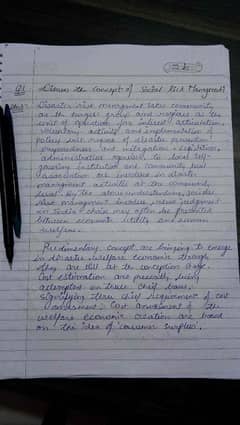 Q1 Discuss the concept of Social Risk Management
Ans: Disaster risk management takes community
as the target group and megaces as the
unit of operation for interest articulation,
voluntary activity and implementation of
policy with regard of disaster prevention,
preparedness and mitigation legislature,
administrative agencies to local self-
governing institution and community level
association are involved in disaster
management activities at the community
level by the above understanding social
risk management involves value judgment
or tradeoff choice may often be presented
between economic utility and human
welfare.
Rudimentary concept are bringing to emerge
in disaster welfare economic through
they are still at the conception stage.
Cost estimation are presently being
attempted on these chief bases.
signifying three chief requirement of cost
assessment: cost assessment of the
welfare economic creation are based
on the idea of consumer surplus.